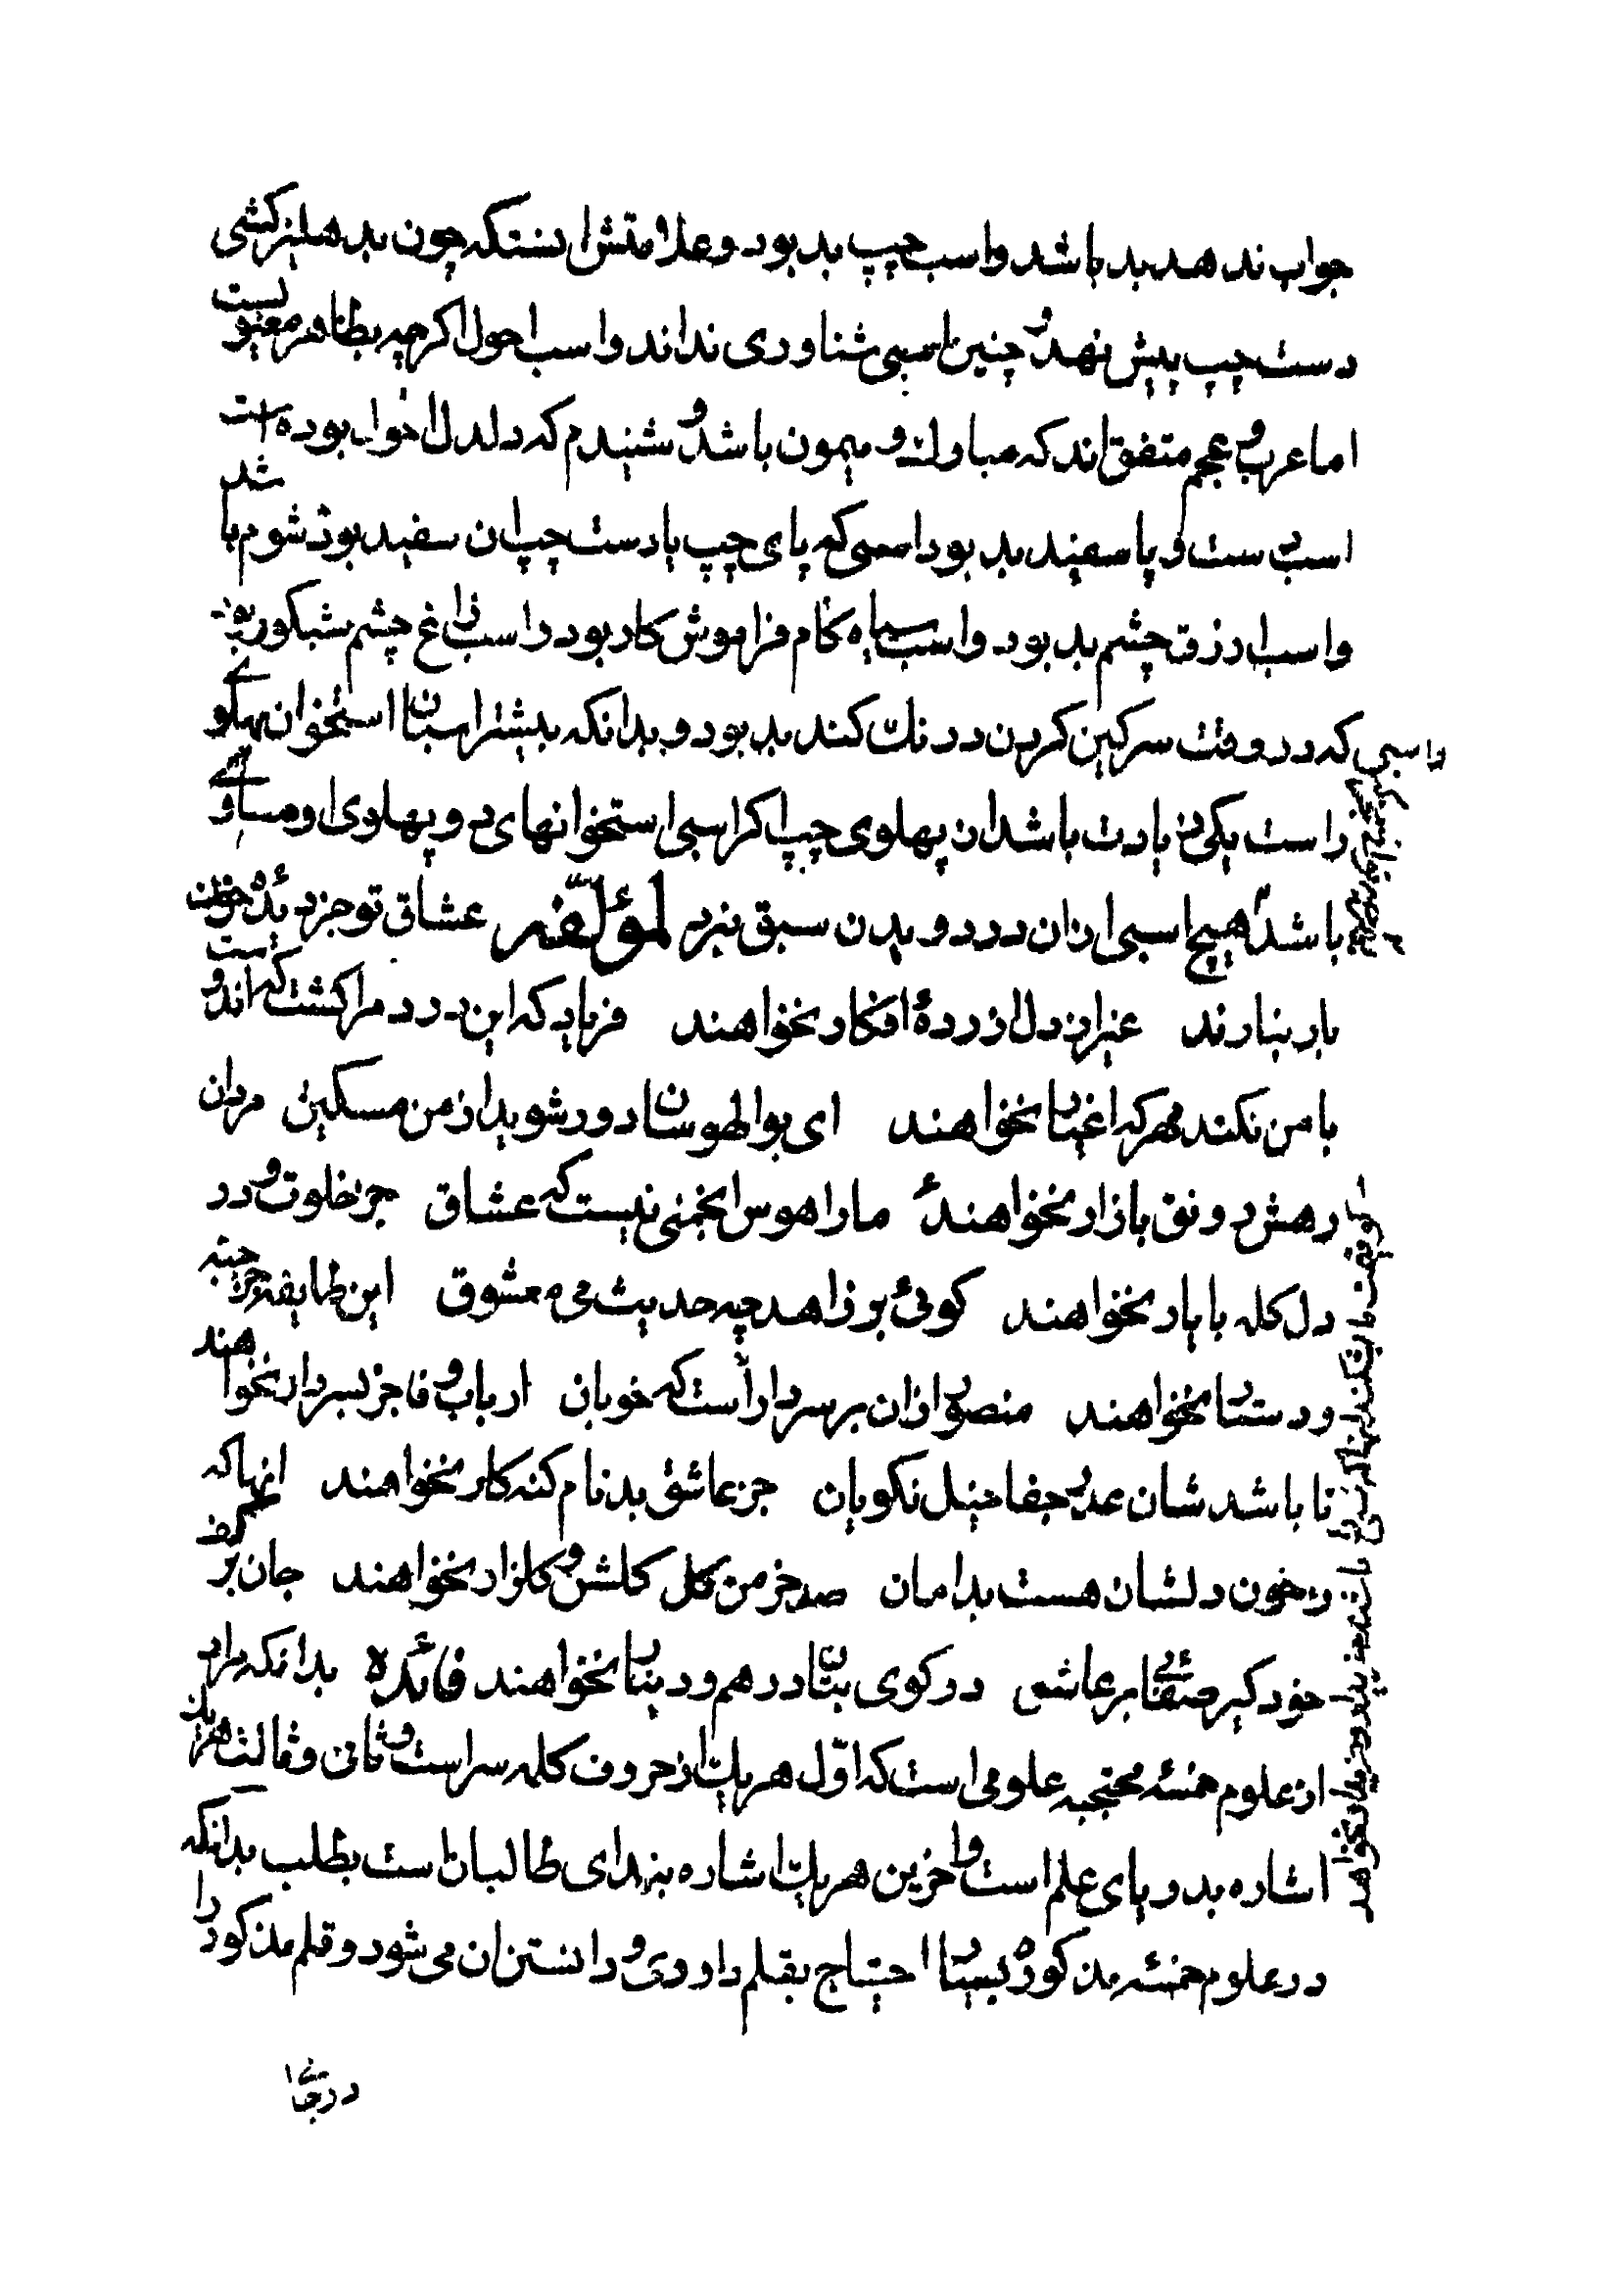 جواب ندهد بد باشد واسب چپ بد بود وعلامتش انستکه چون بدهلیز کشی
دست چپ پیش نهد و چنین اسبی شناوری نداند واسب احول اکرچه بظاهر معیوبست
اما عرب و عجم متفق اند که مبارك و میمون باشد و شنیدم که دلدل احول بوده است
اسب دست و پا سفید بد بود اسبی که پای چپ یا دست چپ ان سفید بود شوم باشد
واسب ازرق چشم بد بود واسب سیاه کام فراموش کار بود واسب زاغ چشم شبکور بود
واسبی که در وقت سرکین کردن درنك کند بد بود و بدانکه بیشتر اسبان استخوان پهلوی
راست یکی زیادت باشد از پهلوی چپ اکر اسبی استخوانهای دو پهلوی او مساوی
باشد هیچ اسبی ازان در دویدن سبق نبرد لمؤلّفه عشاق تو جز دیدهٔ خونبار
بار نیارند غیر از دل ازردهٔ افکار نخواهند فریاد که این درد مرا کشت که اندوست
با من نکند مهر که اغیار نخواهند ای بوالهوسان دور شوید از من مسکین مردان
رهش رونق بازار نخواهند ما را هوس انجمنی نیست که عشاق جز خلوت و در
دل کله با یار نخواهند کوئی بر زاهد چه حدیث می و معشوق این طایفه جز جبه
ودستار نخواهند منصور ازان بر سر دار است که خوبان ارباب وفا جز بسر دار نخواهند
تا باشد شان عذر جفا خیل نکویان جز عاشق بدنام کنه کار نخواهند انها که
ز خون دلشان هست بدامان صد خرمن کل کلشن و کلزار نخواهند جان بر کف
خود کیر صفائی بر عاشق در کوی بتان درهم و دینار نخواهند فائده بدانکه مراد
از علوم خمسهٔ محتجبه علومی است که اوّل هر یك از حروف کله سر است و ثانی و ثالث هر یك
اشاره بدو پای علم است و اخرین هر یك اشاره بندای طالبان است بطلب بدانکه
در علوم خمسه مذکوره بسیار احتیاج بقلم داودی و دانستن ان می شود و قلم مذکور را
در جائی